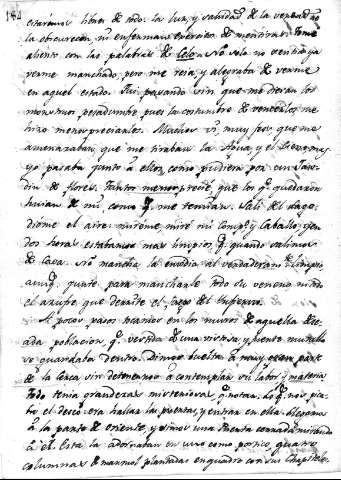 184
estaremos libres de todo. la luz, y validad de la verdad no
la obscurecen, ni enfermaun exercicios de mentiras. Tomé
aliento con las palabras de Celo, no solo no sentia ya
verme manchado, pero me reia, y alegraba de verme
en aquel estado. Fui pasando sin que me dieran los
monstruos pesadumbre pues la costumbre de vencerlos me
hizo menospreciarlos. Muchos vi, muy feos, que me
amenazaban, que me tiraban la Agua, y el Cieno, mas
yo pasaba junto à ellos, como pudiera por un Jar
din de flores. Tanto menosprecié, que los q.e quedaron
huian de mi como q.e me temian. Salí del lago
dióme el aire: mireme, miré mi comp.o y Caballo, y en
dos horas estabamos mas limpios, q.e quando salimos
de Casa. No mancha la envidia al verdadero
aunq.e gaste para mancharle todo su veneno
el azufre que derrite el fuego del Infierno.
A pocos pasos dimos en los muros de aquella de
ada poblacion, q.e vestida de una vistosa, y fuerte muralla
se guardaba dentro. Dimos buelta à muy gran parte
de la Cerca sin detenernos à contemplar su labor, y materia
todo tenia grandezas misteriosas q.e notar. Lo q.e nos pica
ba el deseo era hallar las puertas, y entrar en ella. Llegamos
à la parte de oriente, y vimos una Puerta cerrada mirando
à el. Esta la adornaban en uno como portico, quatro
columnas de marmol plantadas en quadro con sus Chapiteles